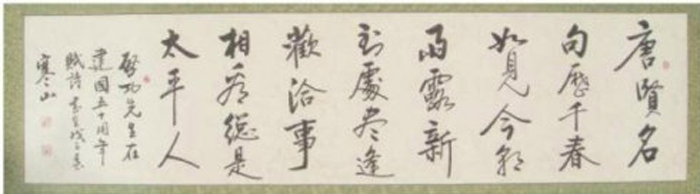 唐賢名
句歷千春
如見今朝
雨露新
到處尽逢
歡洽事
相看總是
太平人
啓功先生在
建國五十周年
賦詩
寒山